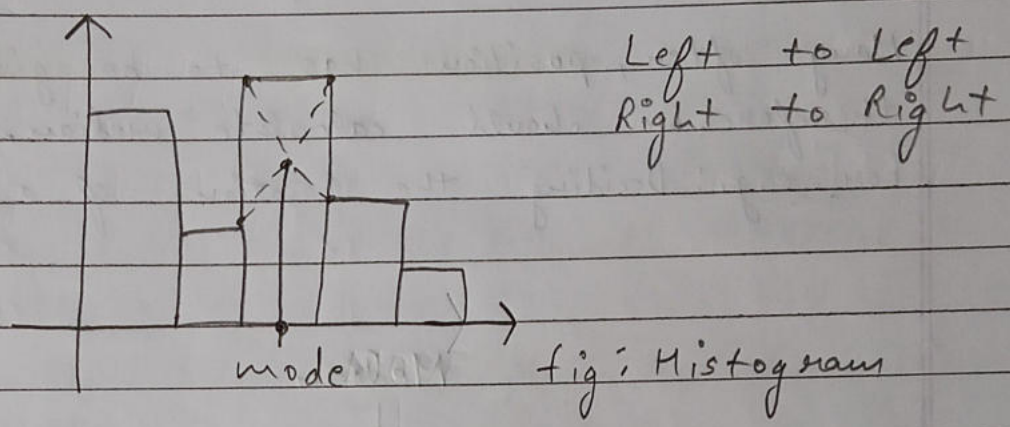 Left to Left
Right to Right
mode
fig: Histogram